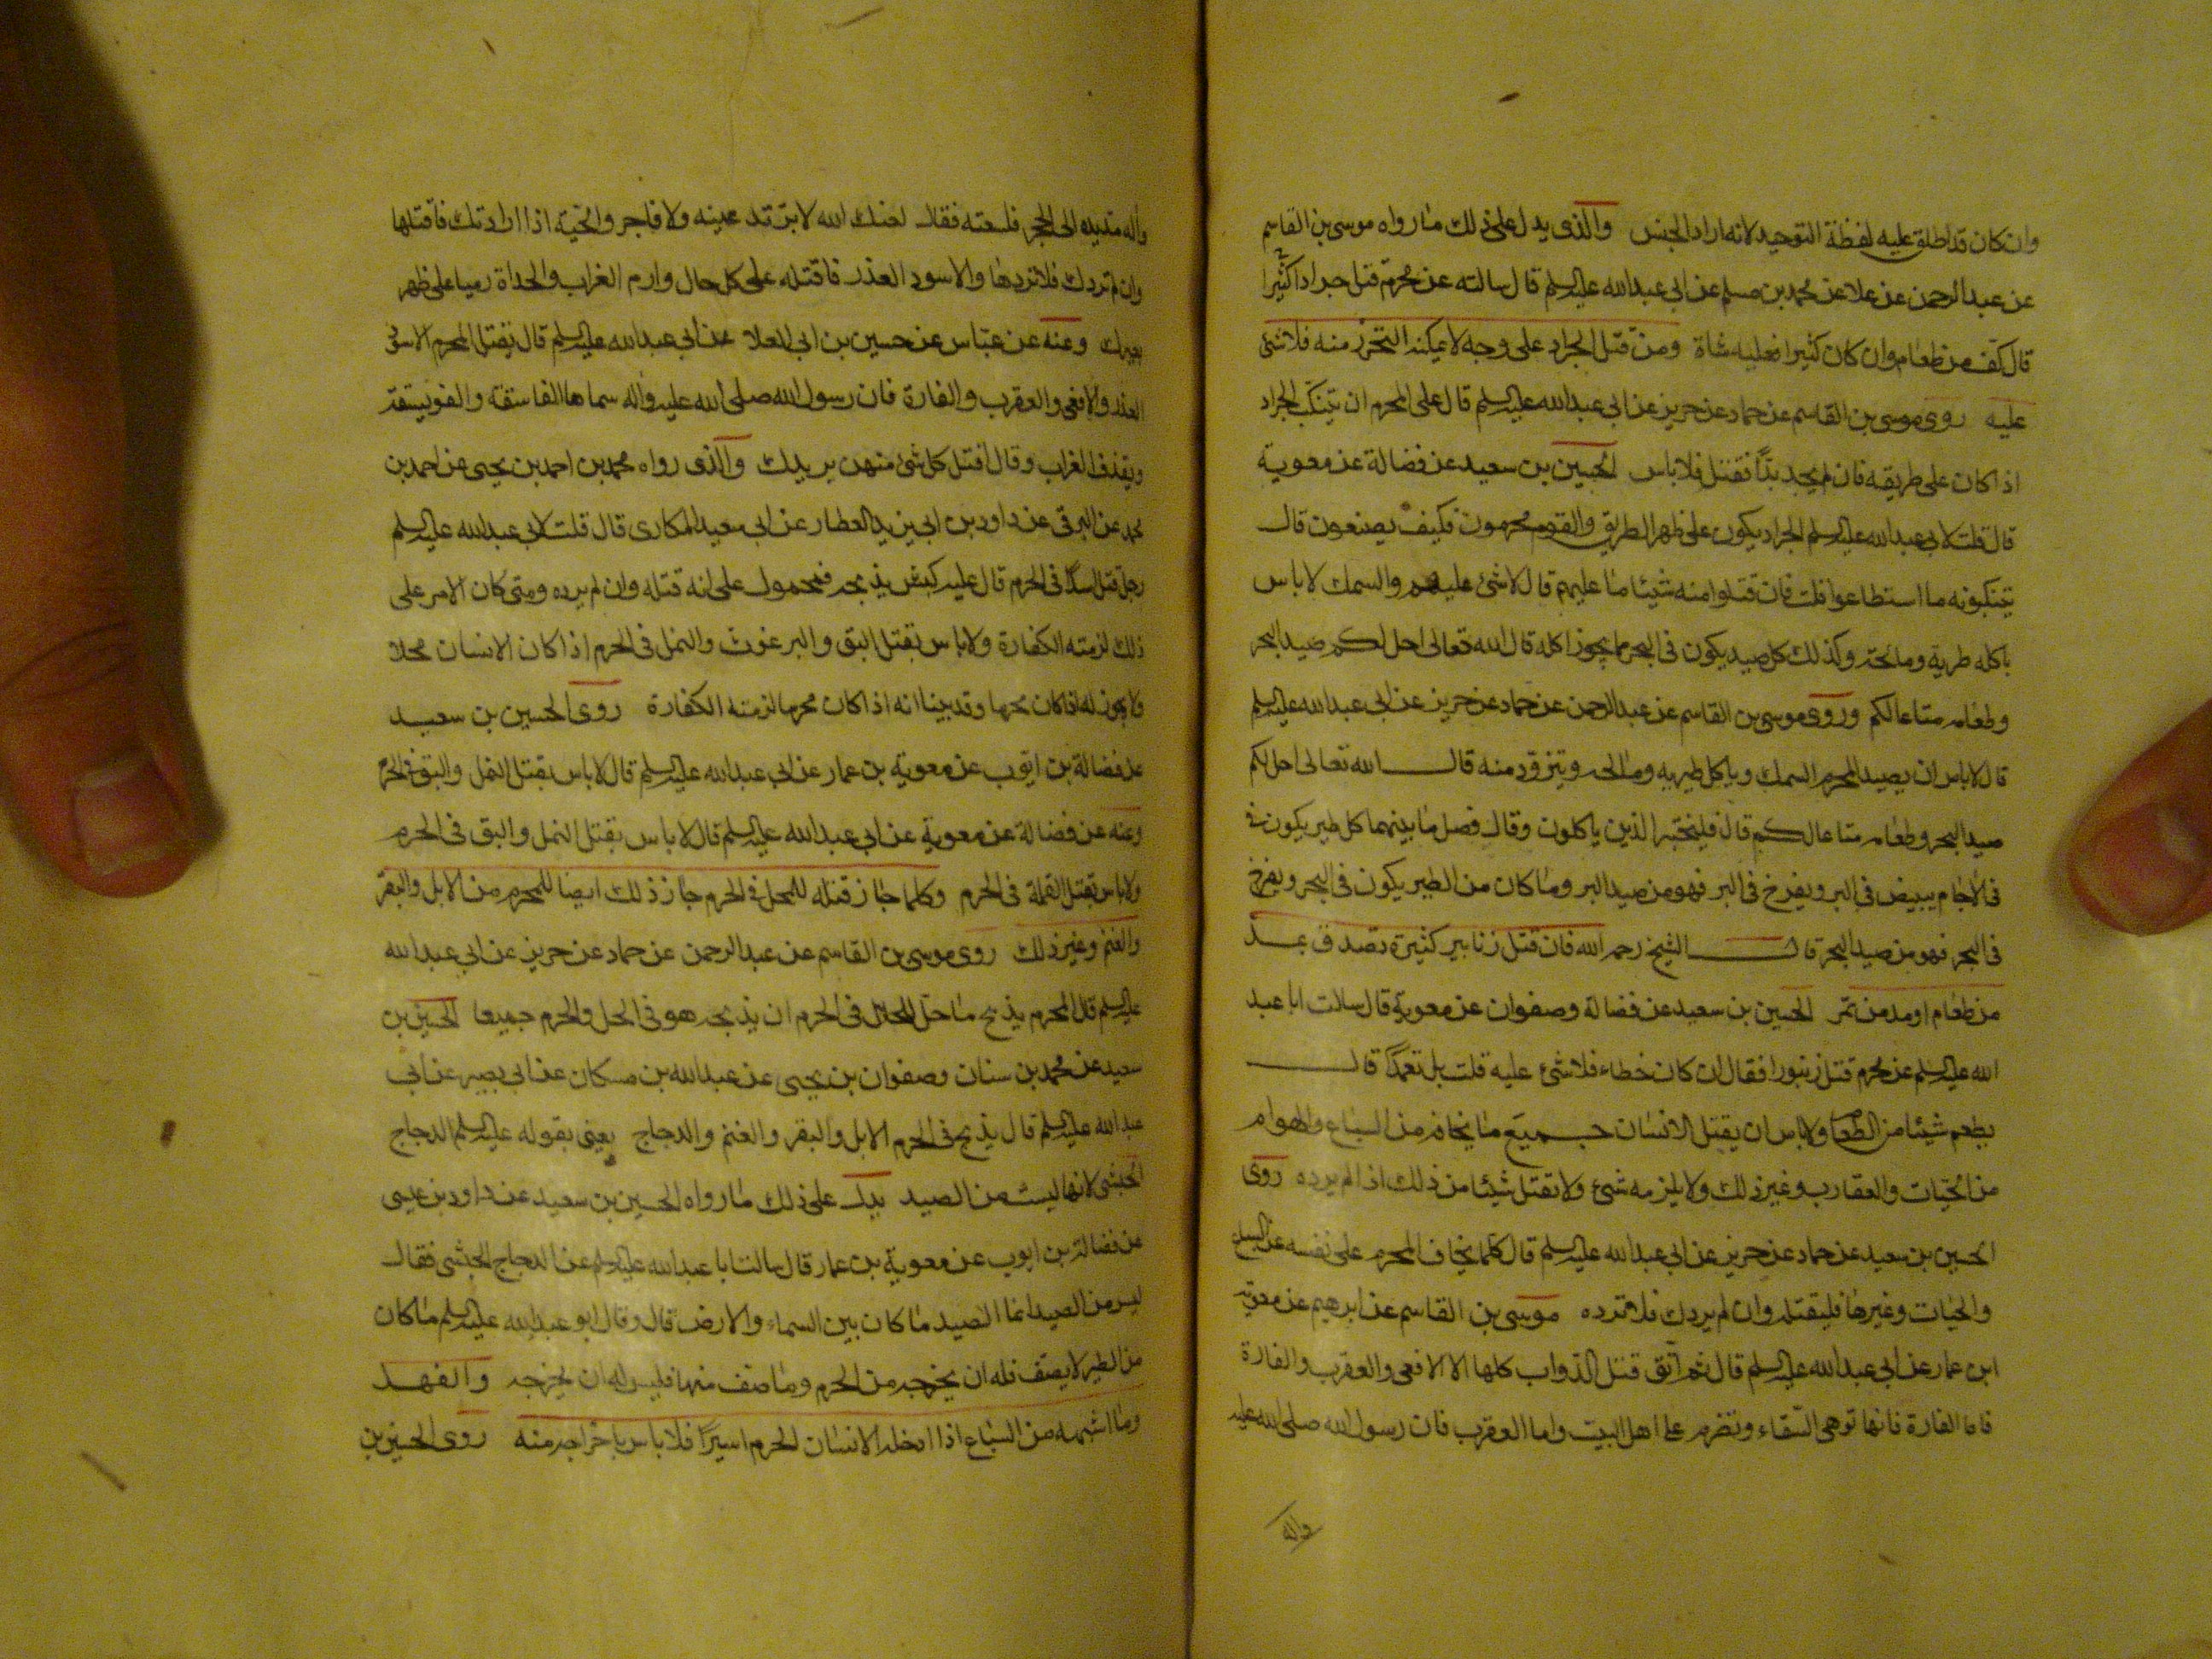 وان كان قد اطلق عليه لفظة التوحيد لانه اراد الجنس والذى يدل على ذلك ما رواه موسى بن القاسم
عن عبد الرحمن عن علا عن محمد بن مسلم عن ابى عبد الله عليه السلم قال سالته عن محرم قتل جرادا كثيرا
قال كف من طعام وان كان كثيرا فعليه شاة ومن قتل الجراد على وجه لا يمكنه التحرز منه فلا شئ
عليه روى موسى بن القاسم عن حماد عن حريز عن ابى عبد الله عليه السلم قال على المحرم ان يتنكب الجراد
اذا كان على طريقه فان لم يجد بدا فقتل فلا باس الحسين بن سعيد عن فضالة عن معوية
قال قلت لابى عبد الله عليه السلم الجراد يكون على ظهر الطريق والقوم محرمون فكيف يصنعون قال
يتنكبونه ما استطاعوا قلت فان قتلوا منه شيئا ما عليهم قال لا شئ عليهم والسمك لا باس
باكله طرية ومالحه وكذلك كل صيد يكون فى البحر مما يجوز اكله قال الله تعالى احل لكم صيد البحر
وطعامه متاعا لكم وروى موسى بن القاسم عن عبد الرحمن عن حماد عن حريز عن ابى عبد الله عليه السلم
قال لا باس ان يصيد المحرم السمك وياكل طريه ومالحه ويتزود منه قال الله تعالى احل لكم
صيد البحر وطعامه متاعا لكم قال فليختر الذين ياكلون وقال فصل ما بينهما كل طير يكون فى
فى الاجام يبيض فى البر ويفرخ فى البر فهو من صيد البر وما كان من الطير يكون فى البحر ويفرخ
فى البحر فهو من صيد البحر قال الشيخ رحمه الله فان قتل زنابير كثيرة تصدق بمد
من طعام او مد من تمر الحسين بن سعيد عن فضالة وصفوان عن معوية قال سالت ابا عبد
الله عليه السلم عن محرم قتل زنبورا فقال ان كان خطاء فلا شئ عليه قلت بل تعمدا قال
يطعم شيئا من الطعام ولا باس ان يقتل الانسان جميع ما يخافه من السباع والهوام
من الحيات والعقارب وغير ذلك ولا يلزمه شئ ولا تقتل شيئا من ذلك اذا لم يرده روى
الحسين بن سعيد عن حماد عن حريز عن ابى عبد الله عليه السلم قال كلما يخاف المحرم على نفسه من السباع
والحيات وغيرها فليقتله وان لم يردك فلا ترده موسى بن القاسم عن ابرهيم عن معوية
ابن عمار عن ابى عبد الله عليه السلم قال ثم اتق قتل الدواب كلها الا الافعى والعقرب والفارة
فاما الفارة فانها توهى السقاء وتضرم على اهل البيت واما العقرب فان رسول الله صلى الله عليه
واله
واله مد يده الى الحجر فلسعته فقال لعنك الله لا برا تدعينه ولا فاجر والحية اذا ارادتك فاقتلها
وان لم تردك فلا تردها والاسود الغدر فاقتله على كل حال وارم الغراب والحداة رميا على ظهر
بعيرك وعنه عن عباس عن حسين بن ابى العلا عن ابى عبد الله عليه السلم قال يقتل المحرم الاسود
الغدر والافعى والعقرب والفارة فان رسول الله صلى الله عليه واله سماها الفاسقة والفويسقة
ويقذف الغراب وقال اقتل كل شئ منهن يريدك والذى رواه محمد بن احمد بن يحيى عن احمد بن
محمد عن البرقى عن داود بن ابى يزيد العطار عن ابى سعيد المكارى قال قلت لابى عبد الله عليه السلم
رجل قتل اسدا فى الحرم قال عليه كبش يذبحه فمحمول على انه قتله وان لم يرده ومتى كان الامر على
ذلك لزمته الكفارة ولا باس بقتل البق والبرغوث والنمل فى الحرم اذا كان الانسان محلا
ولا يجوز له اذا كان محرما وقد بينا انه اذا كان محرما لزمته الكفارة روى الحسين بن سعيد
عن فضالة بن ايوب عن معوية بن عمار عن ابى عبد الله عليه السلم قال لا باس بقتل النمل والبق فى الحرم
وعنه عن فضالة عن معوية عن ابى عبد الله عليه السلم قال لا باس بقتل النمل والبق فى الحرم
ولا باس بقتل القملة فى الحرم وكلما جاز قتله للمحل فى الحرم جاز ذلك ايضا للمحرم من الابل والبقر
والغنم وغير ذلك روى موسى بن القاسم عن عبد الرحمن عن حماد عن حريز عن ابى عبد الله
عليه السلم قال المحرم يذبح ما حل للحلال فى الحرم ان يذبحه هو فى الحل والحرم جميعا الحسين بن
سعيد عن محمد بن سنان وصفوان بن يحيى عن عبد الله بن مسكان عن ابى بصير عن ابى
عبد الله عليه السلم قال يذبح فى الحرم الابل والبقر والغنم والدجاج يعنى بقوله عليه السلم الدجاج
الحبشى لانها ليست من الصيد يدل على ذلك ما رواه الحسين بن سعيد عن داود بن عيسى
عن فضالة بن ايوب عن معوية بن عمار قال سالت ابا عبد الله عليه السلم عن الدجاج الحبشى فقال
ليس من الصيد انما الصيد ما كان بين السماء والارض قال وقال ابو عبد الله عليه السلم ما كان
من الطير لا يصف فله ان يخرجه من الحرم وما صف منها فليس له ان يخرجه والفهد
وما اشبهه من السباع اذا ادخله الانسان الحرم اسيرا فلا باس باخراجه منه روى الحسين بن